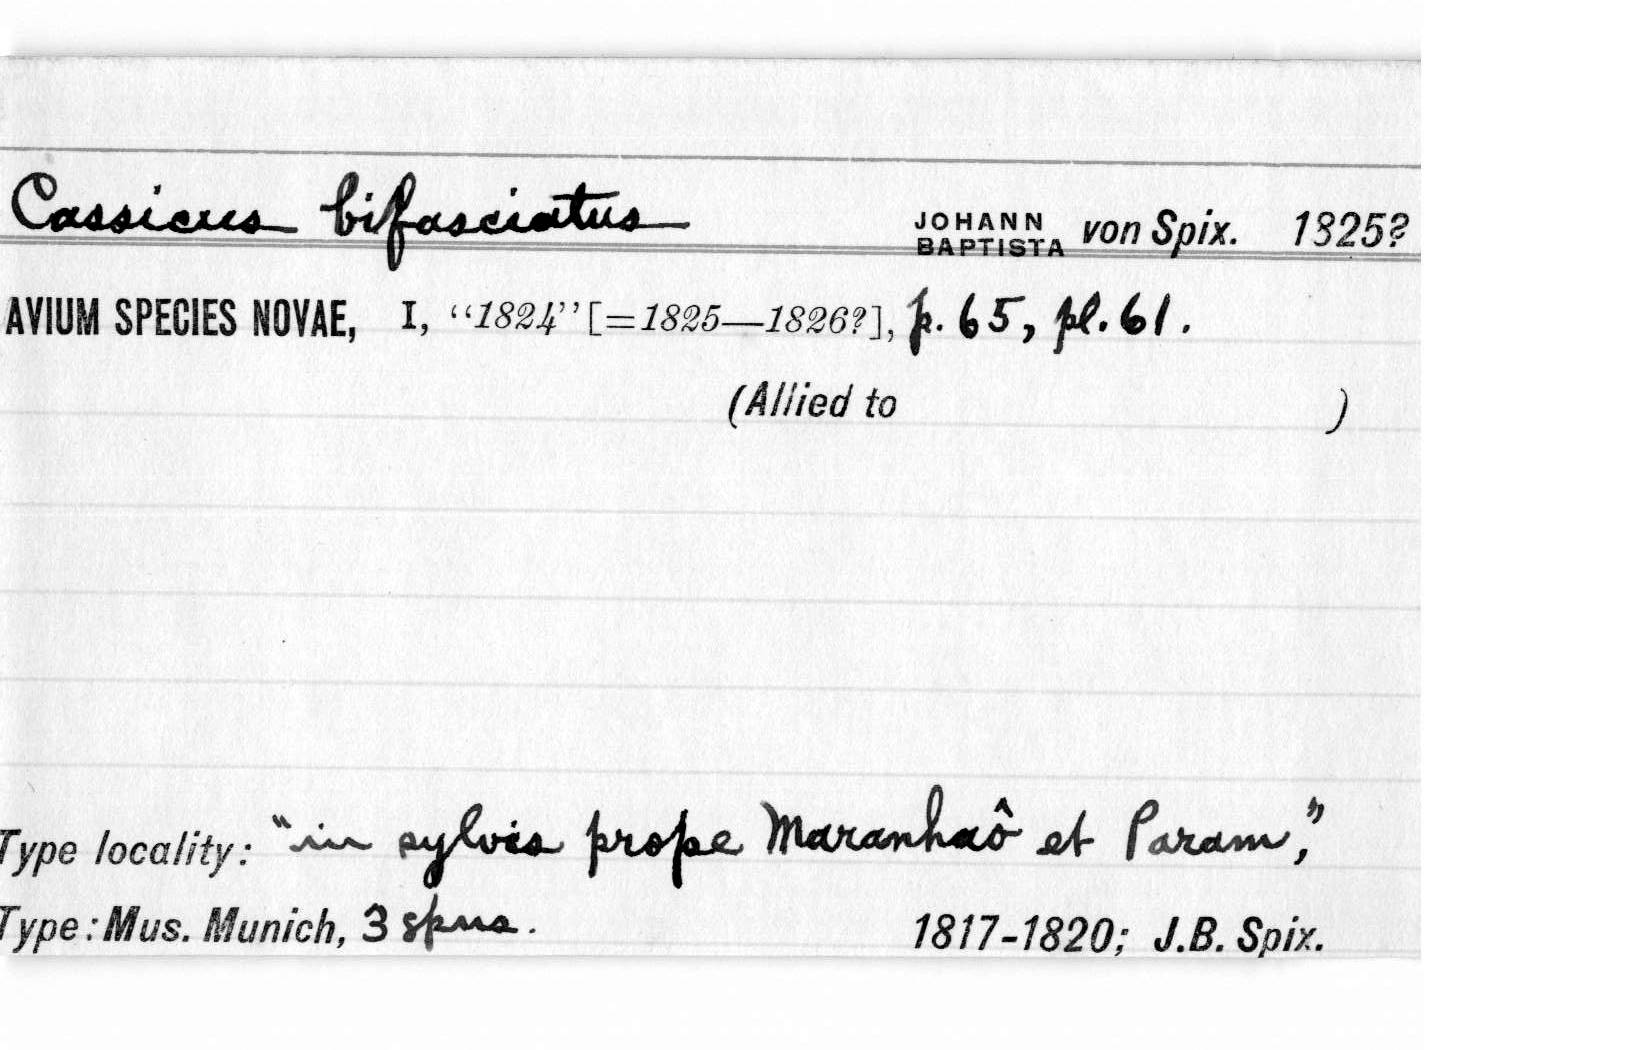 Cassicus bifasciatus JOHANN BAPTISTA von Spix. 1825?
AVIUM SPECIES NOVAE, I, “1824” [=1825—1826?], p. 65, pl. 61.
(Allied to )
Type locality: "in sylvis prope Maranhaô et Param",
Type: Mus. Munich, 3 spns. 1817-1820; J.B. Spix.